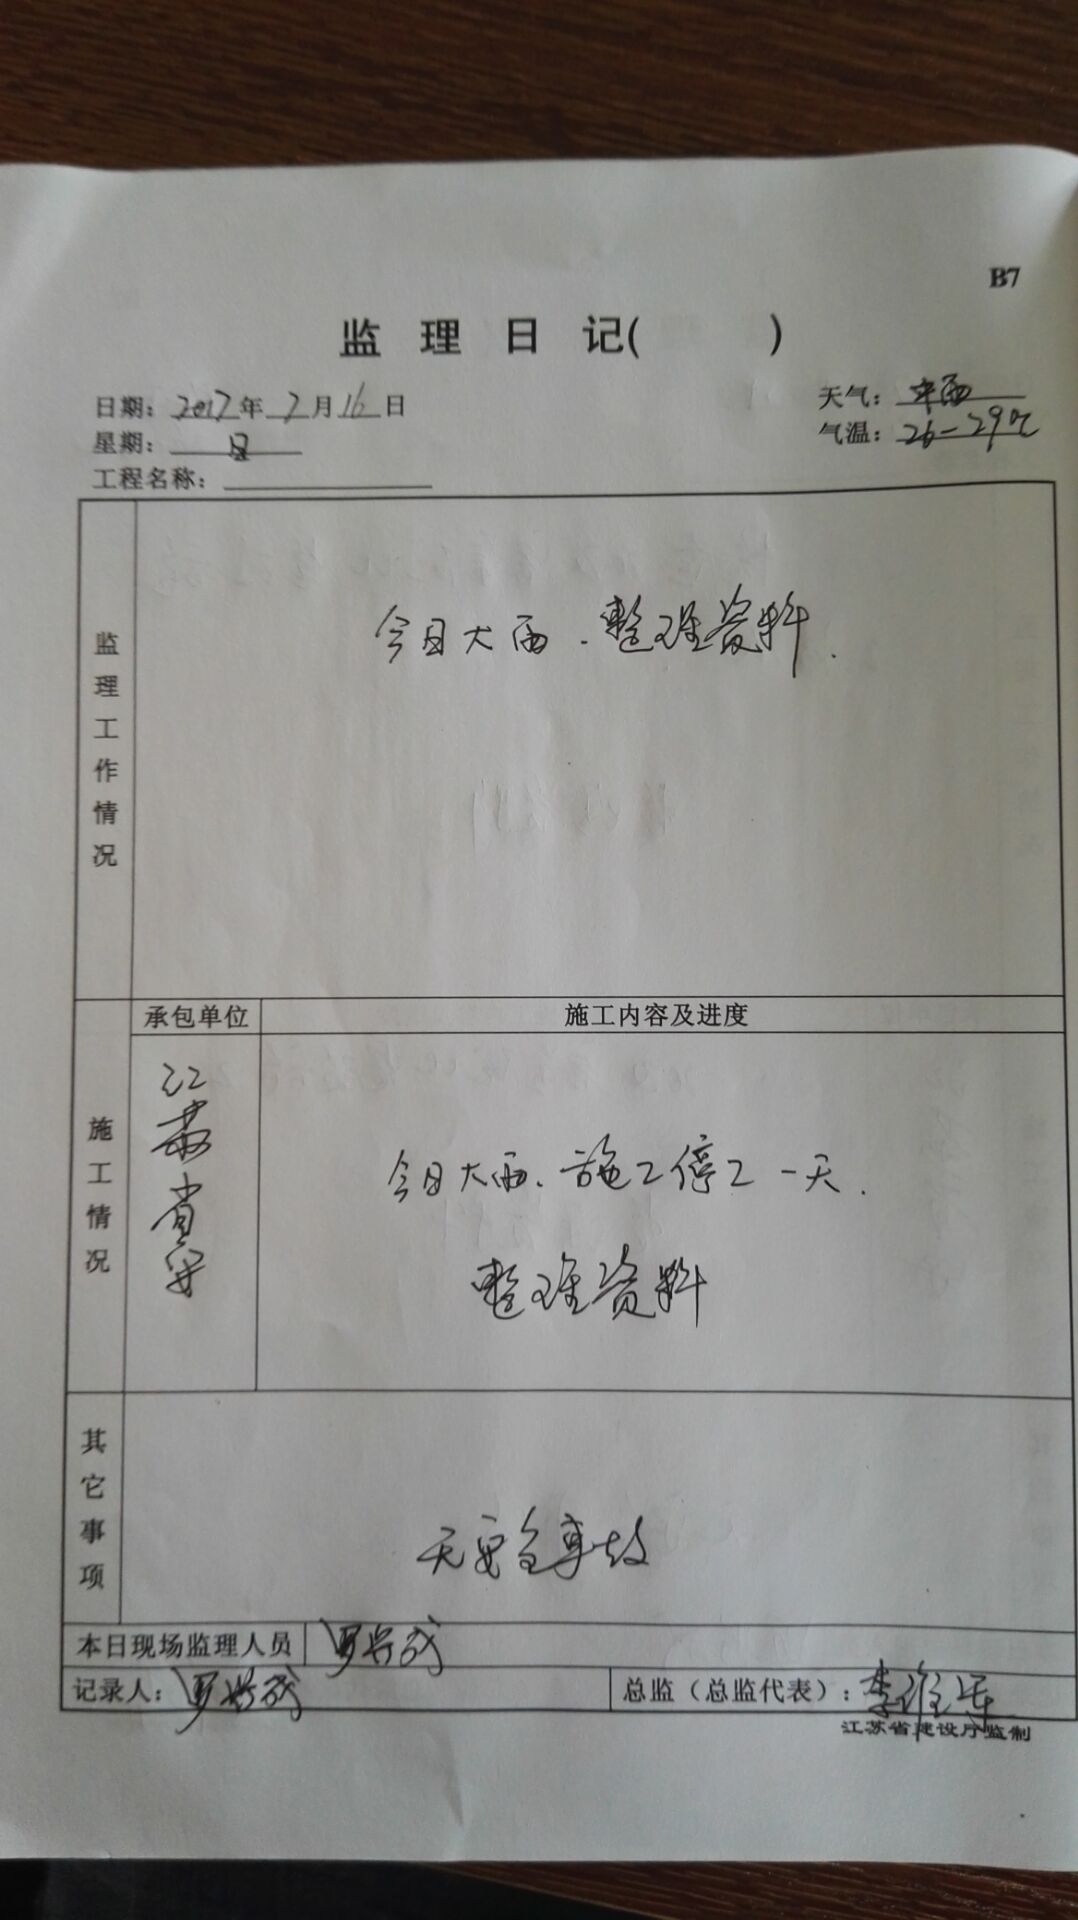 B7
监理日记( )
日期：2017年7月16日
天气：中雨
星期：日
气温：26-29℃
工程名称：
监理工作情况
今日大雨.整理资料.
承包单位
施工内容及进度
施工情况
江苏省安
今日大雨、施工停工一天.
整理资料
其它事项
无安全事故
本日现场监理人员
记录人：
总监（总监代表）：李
江苏省建设厅监制